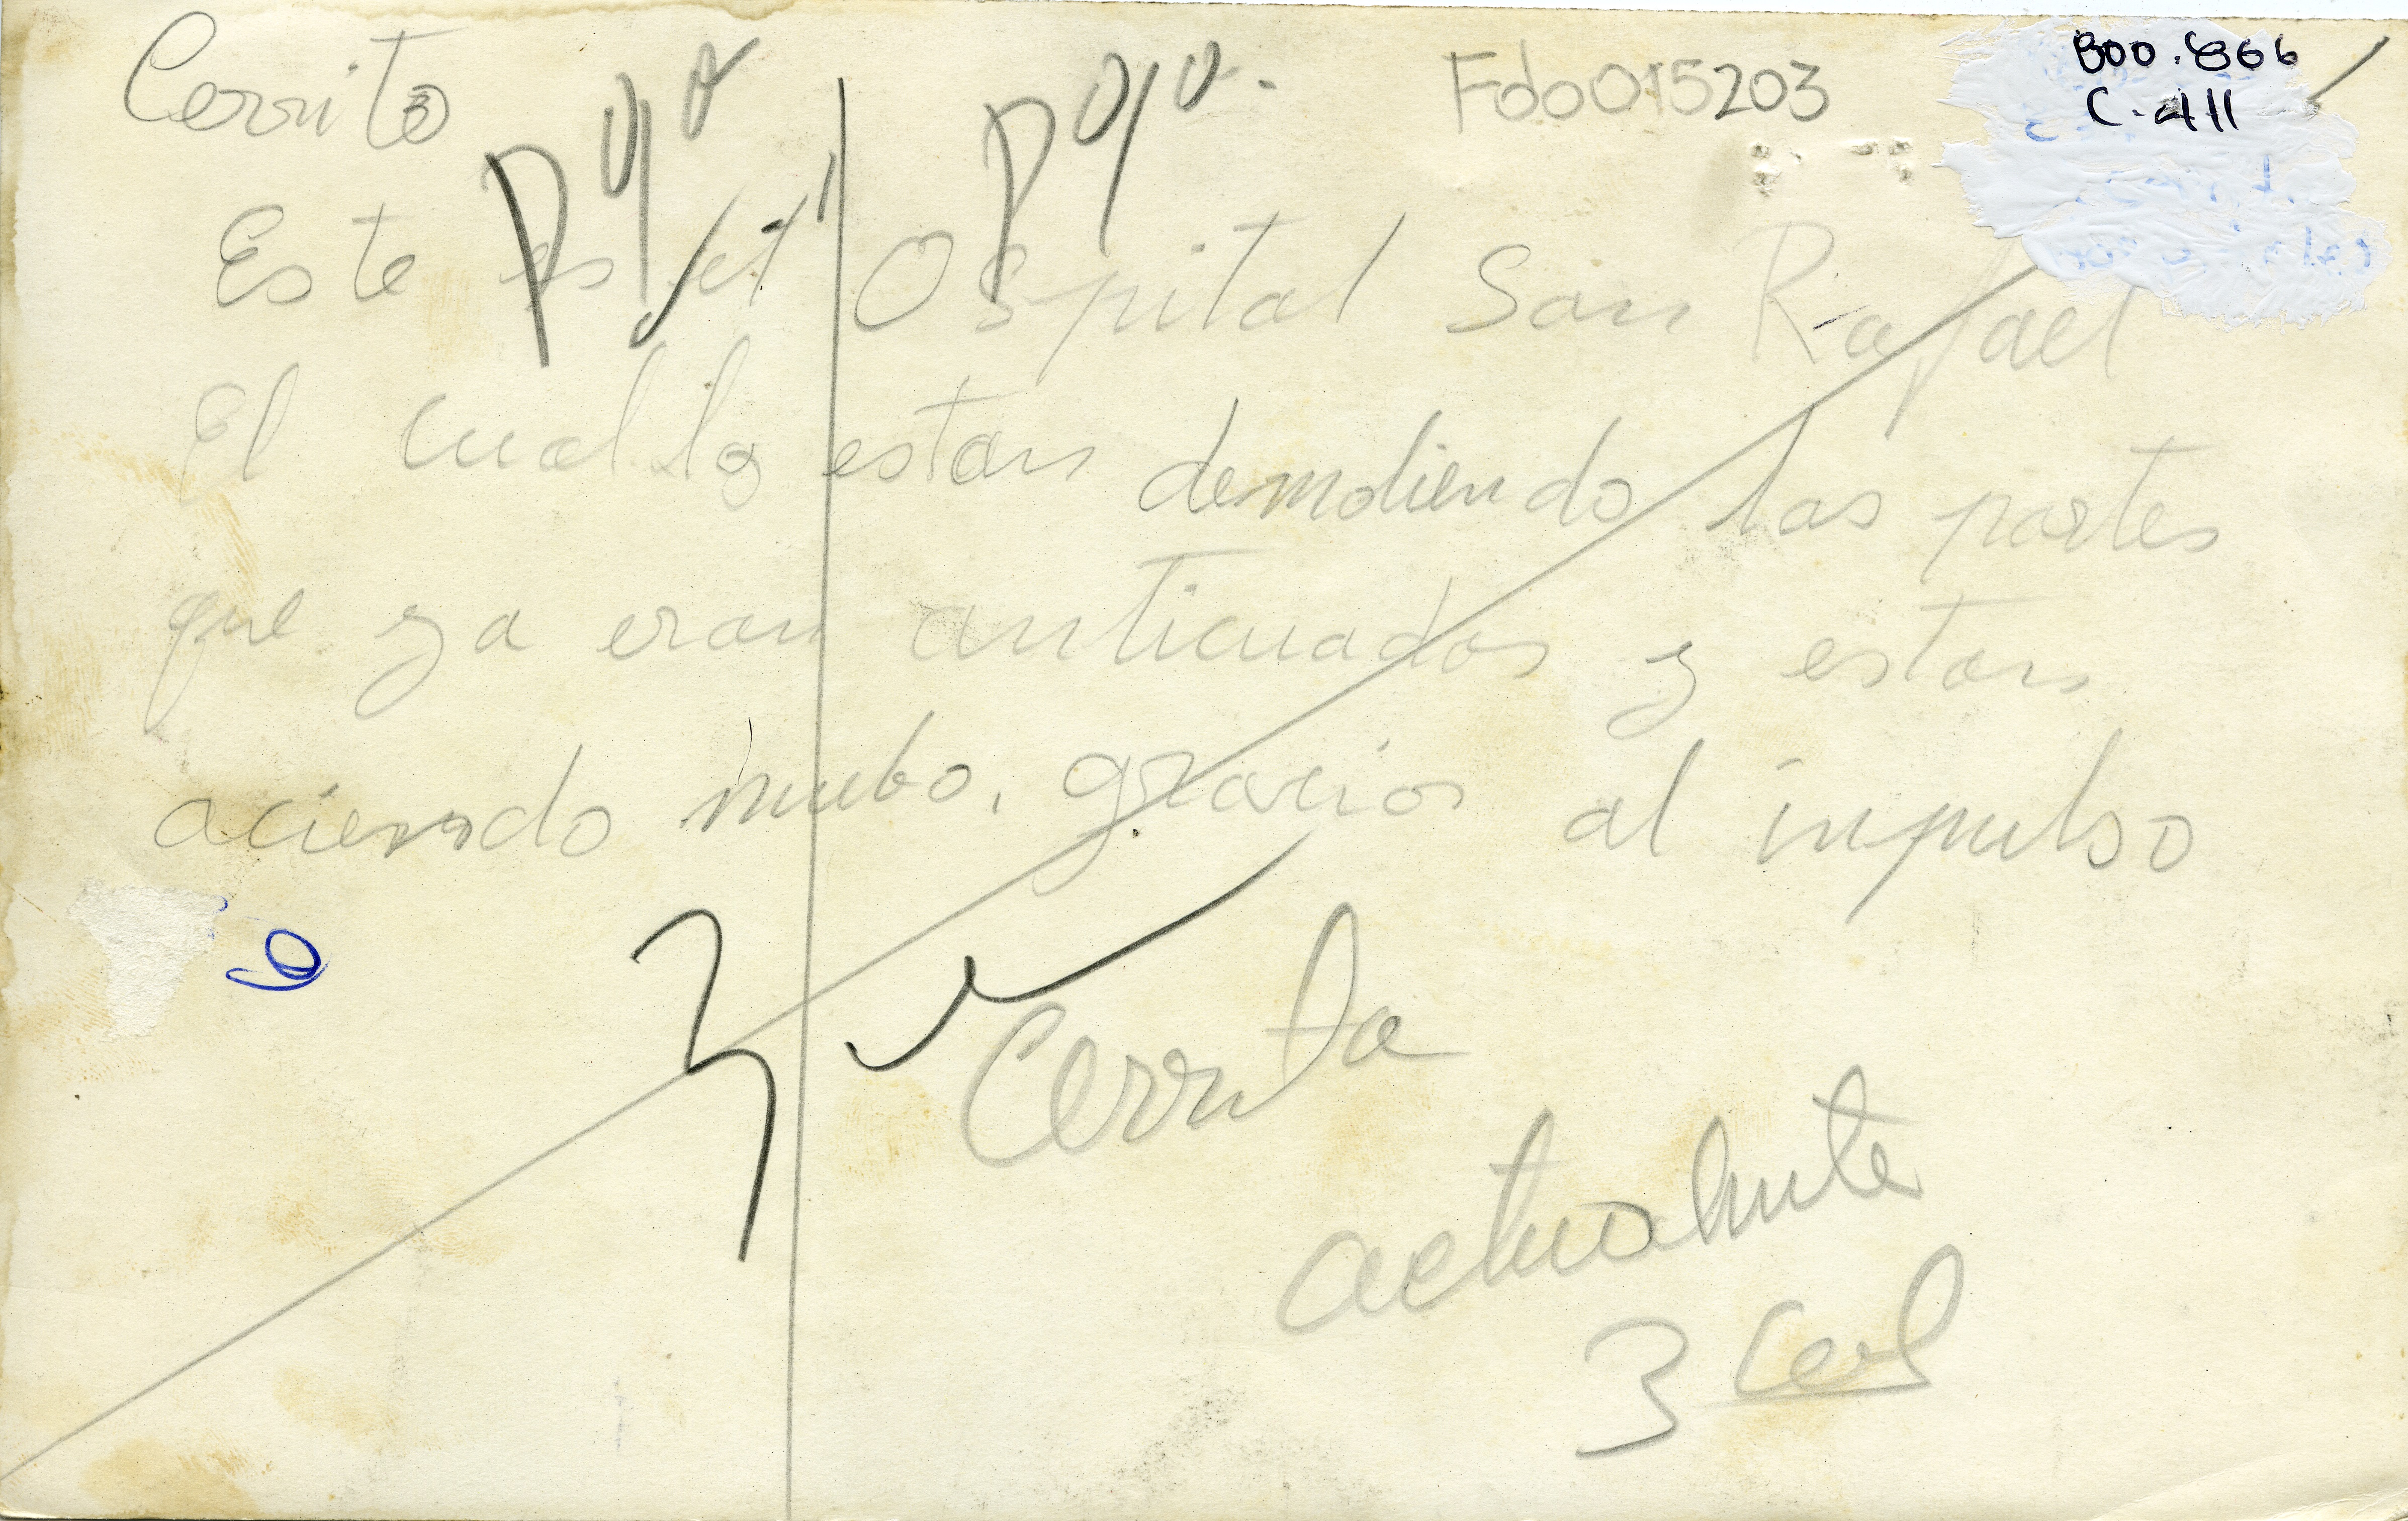 Cerrito
Fdo015203
800.866
C-411
Este es el Ospital San Rafael
El cual lo estan demoliendo las partes
que ya eran anticuadas y estan
aciendo nuebo. gracias al impulso
Cerrito
actualmente
3 Col